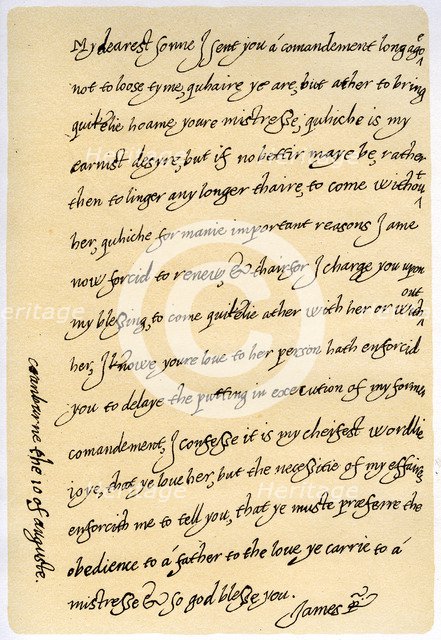 My dearest sonne J sent you a comandement long agoe
not to loose tyme, quhaire ye are, but ather to bring
quikelie hoame youre mistresse, quhiche is my
earnist desyre, but if no bettir maye be, rather
then to linger any longer thaire, to come without
her, quhiche for manie important reasons J ame
now forcid to renew, & thairfor J charge you upon
my blessing, to come quikelie ather with her or without
her, J knowe youre love to her person hath enforcid
you to delaye the putting in execution of my former
comandement, J confesse it is my cheifest wordlie
joye, that ye love her, but the necessitie of my effairs
enforcith me to tell you, that ye muste præferre the
obedience to á father to the love ye carrie to á
mistresse & so god blesse you.
James R
cranburne the 10 of auguste.
Heritage
Heritage
Heritage
Heritage
©